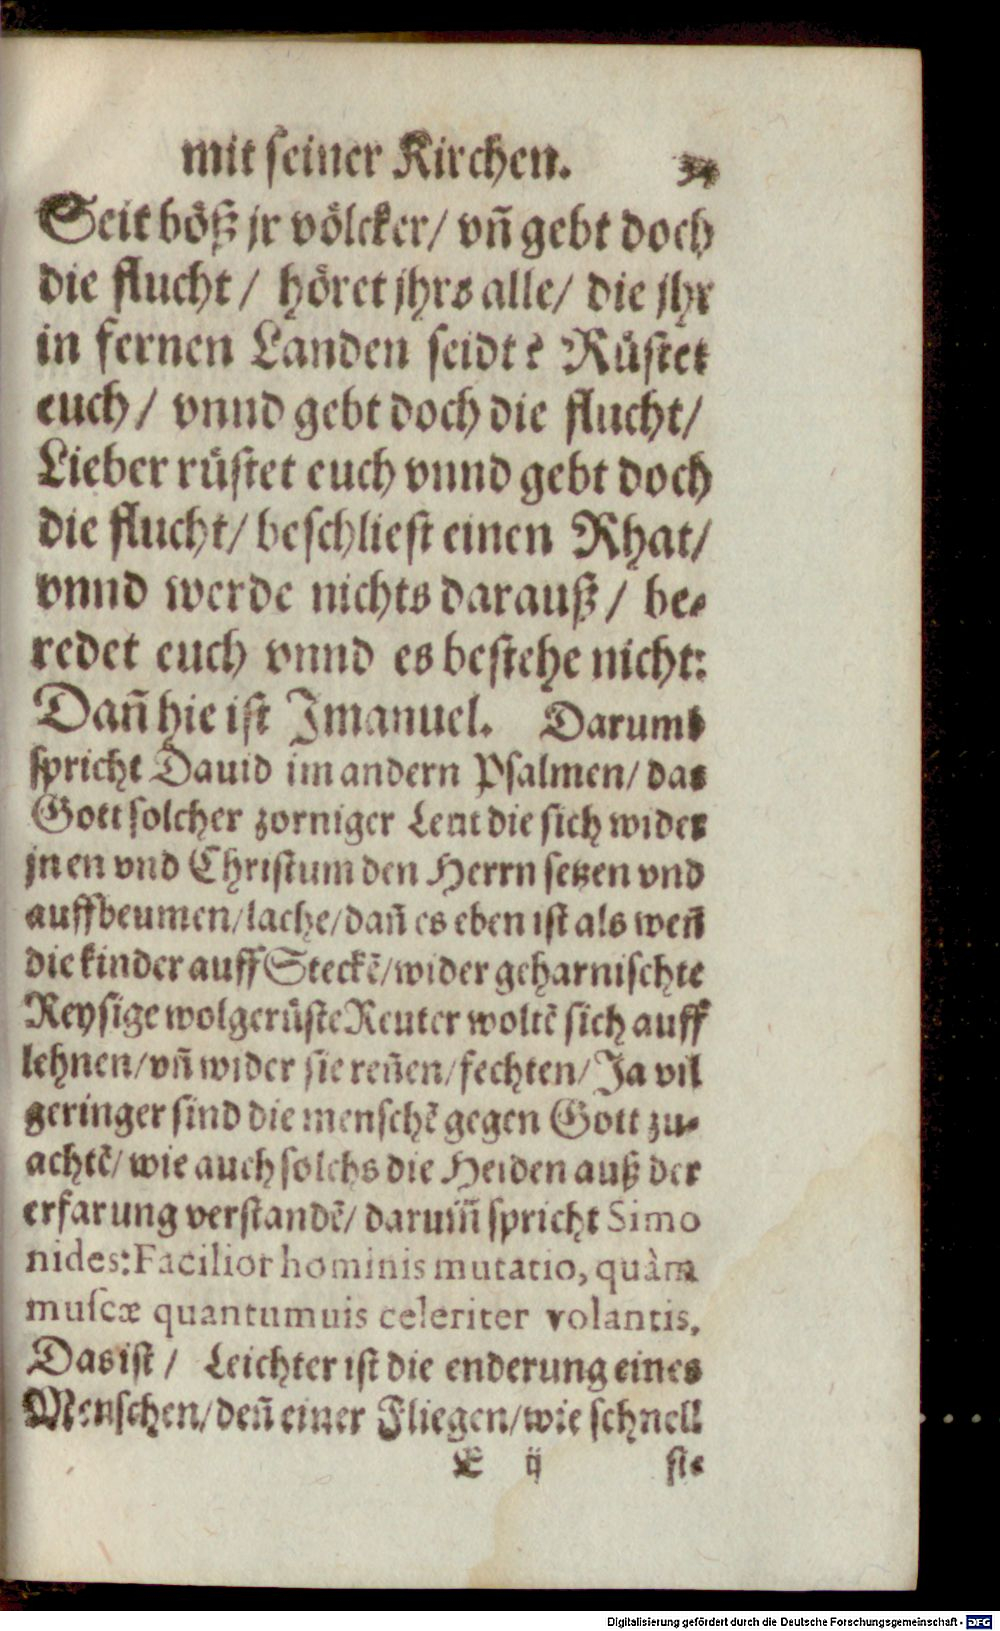 mit seiner Kirchen. 34
Seit böß jr völcker/ vñ gebt doch
die flucht/ höret jhrs alle/ die jhr
in fernen Landen seidt? Rüstet
euch/ vnnd gebt doch die flucht/
Lieber rüstet euch vnnd gebt doch
die flucht/ beschliest einen Rhat/
vnnd werde nichts darauß/ be-
redet euch vnnd es bestehe nicht:
Dañ hie ist Jmanuel. Darumb
spricht Dauid im andern Psalmen/ das
Gott solcher zorniger Leut die sich wider
jnen vnd Christum den Herrn setzen vnd
auffbeumen/ lache/ dañ es eben ist als weñ
die kinder auff Steckẽ/ wider geharnischte
Reysige wolgerüste Reuter woltẽ sich auff
lehnen/ vñ wider sie reñen/ fechten/ Ja vil
geringer sind die menschẽ gegen Gott zu-
achtẽ/ wie auch solchs die Heiden auß der
erfarung verstandẽ/ darum̃ spricht Simo
nides: Facilior hominis mutatio, quàm
muscæ quantumuis celeriter volantis.
Das ist/ Leichter ist die enderung eines
Menschen/ deñ einer Fliegen/ wie schnell
E ij sie
Digitalisierung gefördert durch die Deutsche Forschungsgemeinschaft - DFG